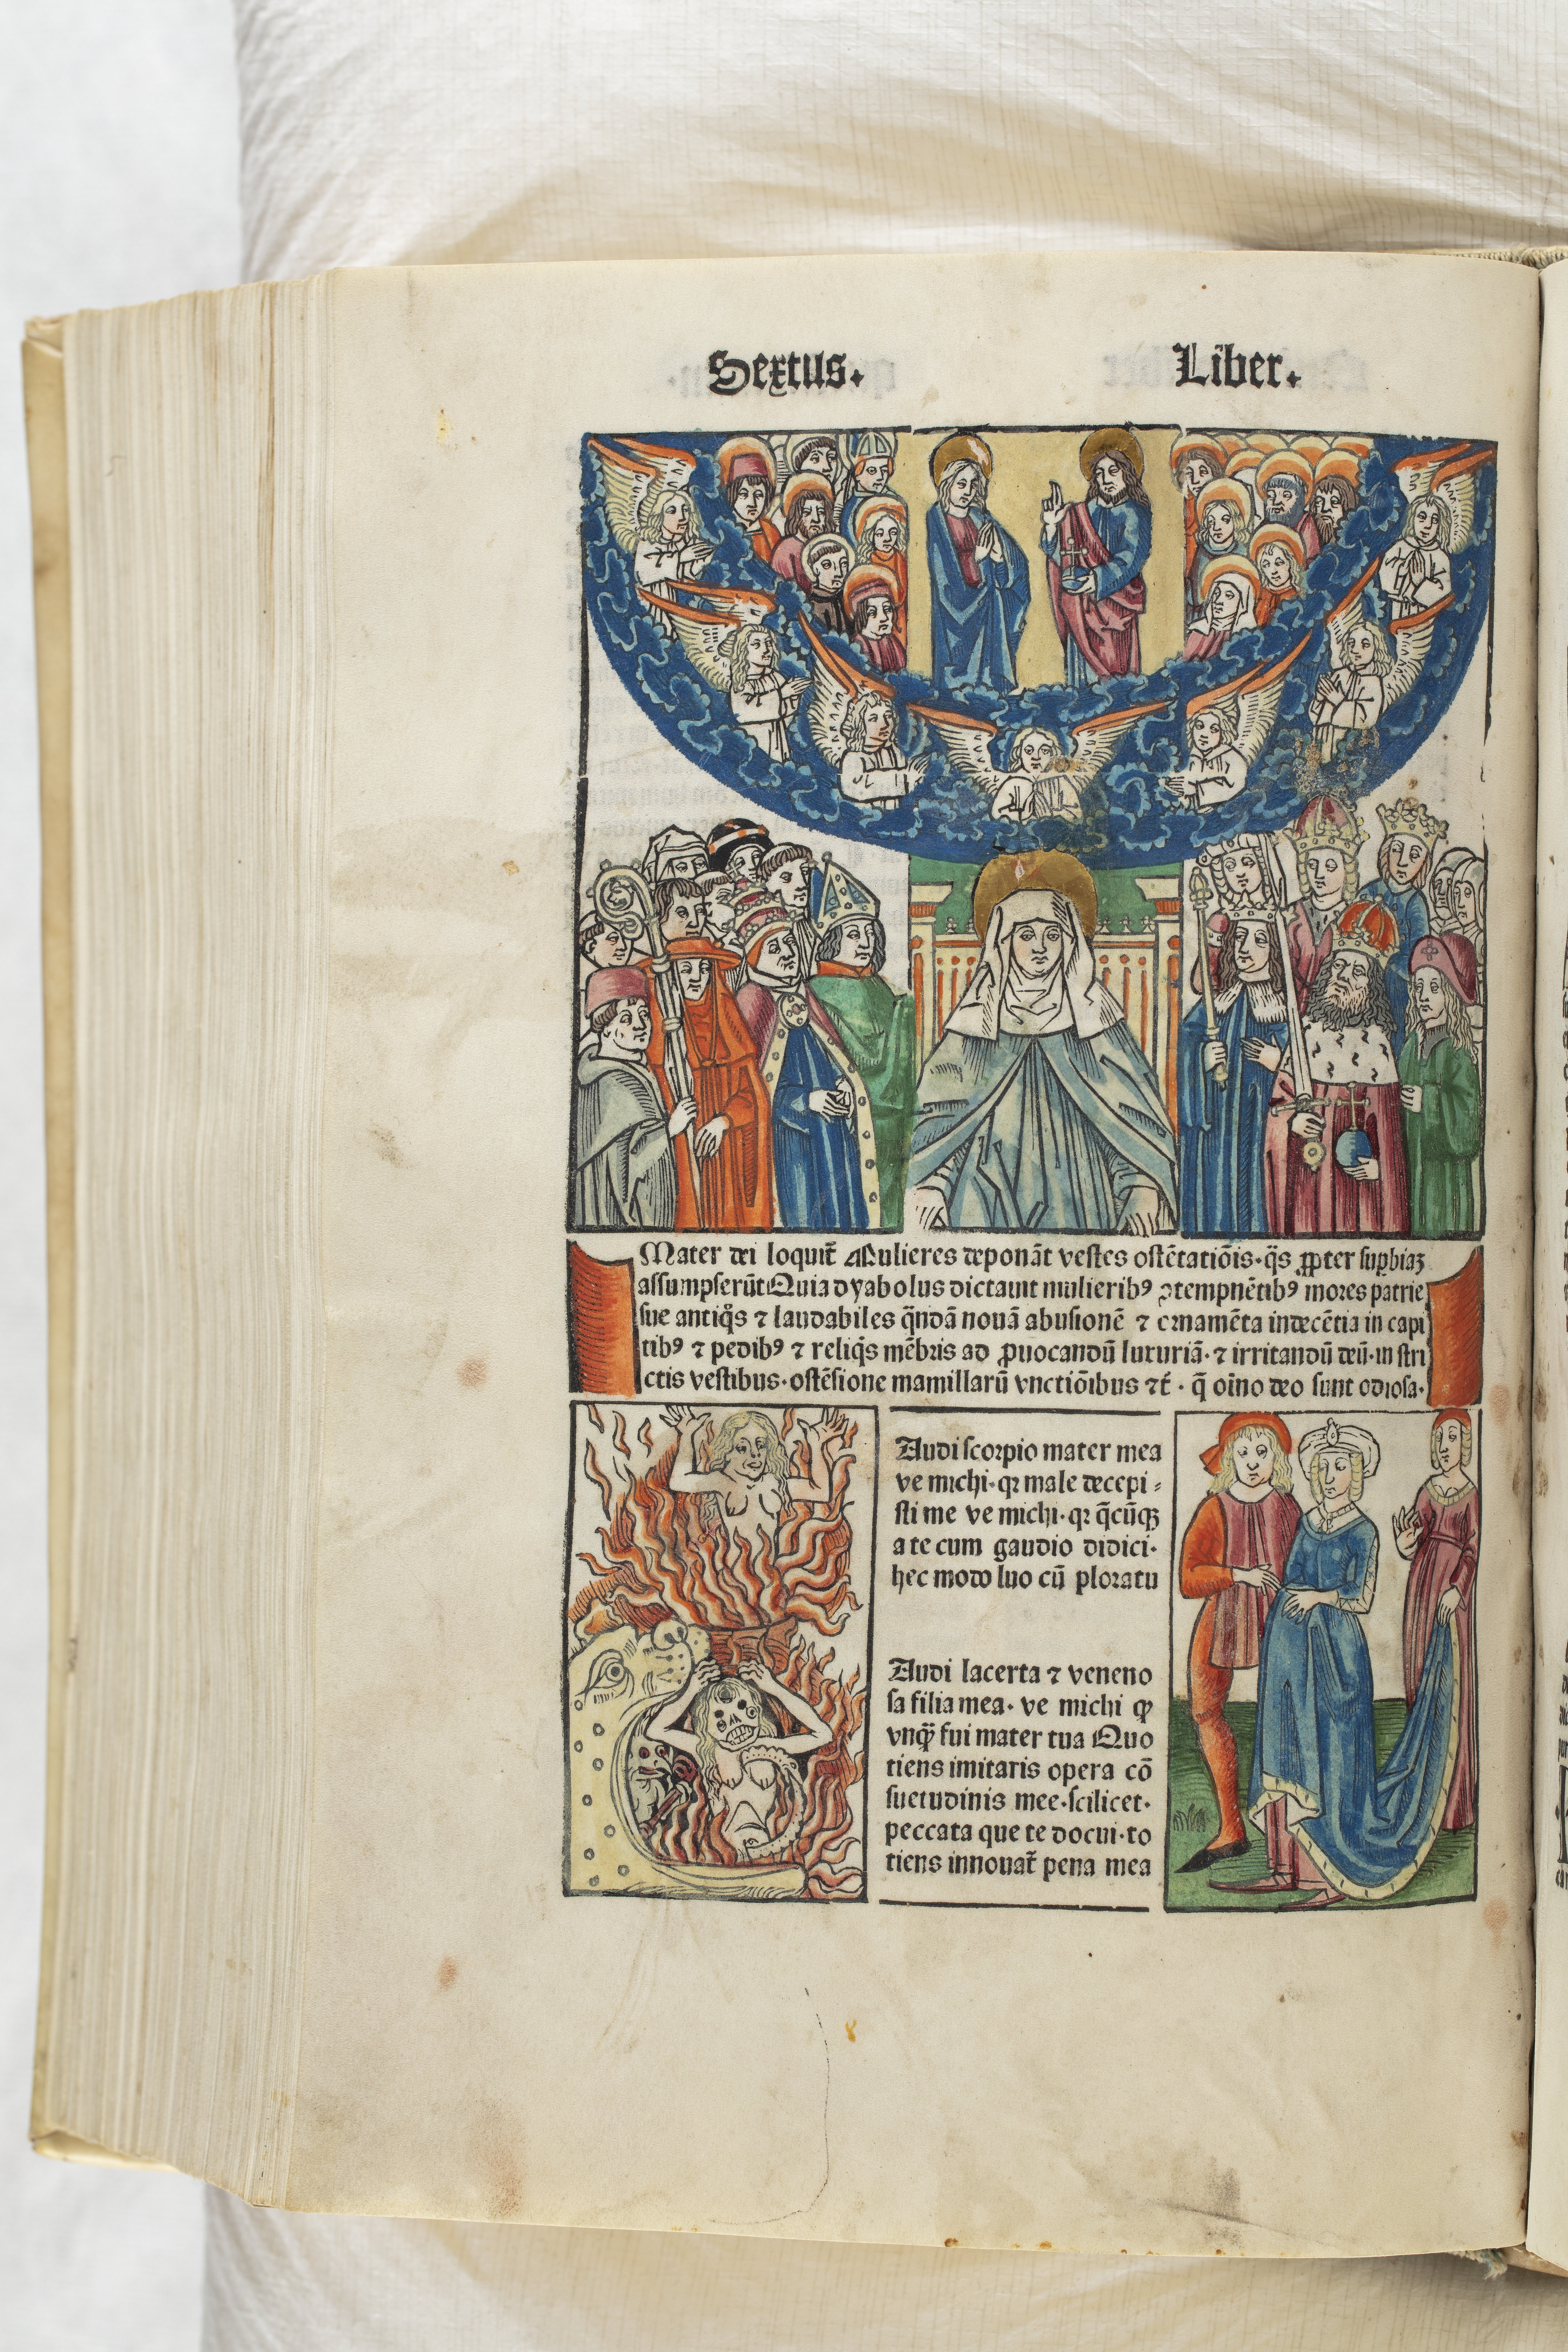 Sextus. Liber.
Mater dei loquit̃ Mulieres deponãt vestes ostẽtatiõis·q̃s ꝓpter suꝑbiaʒ
assumpserũt Quia dyabolus dictauit mulierib⁹ ꝯtempnẽtib⁹ mores patrie
sue antiq̃s ⁊ laudabiles q̃ndã nouã abusionẽ ⁊ ornamẽta indecẽtia in capi
tib⁹ ⁊ pedib⁹ ⁊ reliq̃s mẽbris ad ꝓuocandũ luxuriã·⁊ irritandũ deũ·in stri
ctis vestibus·ostẽsione mamillarũ vnctiõibus ⁊t̃· q̃ oĩno deo sunt odiosa·
Audi scorpio mater mea
ve michi·qꝛ male decepi⸗
sti me ve michi·qꝛ q̃cũqꝫ
a te cum gaudio didici·
hec modo luo cũ ploratu
Audi lacerta ⁊ veneno
sa filia mea· ve michi ꝙ
vnq̃ fui mater tua Quo
tiens imitaris opera cõ
suetudinis mee·scilicet·
peccata que te docui·to
tiens innouat̃ pena mea